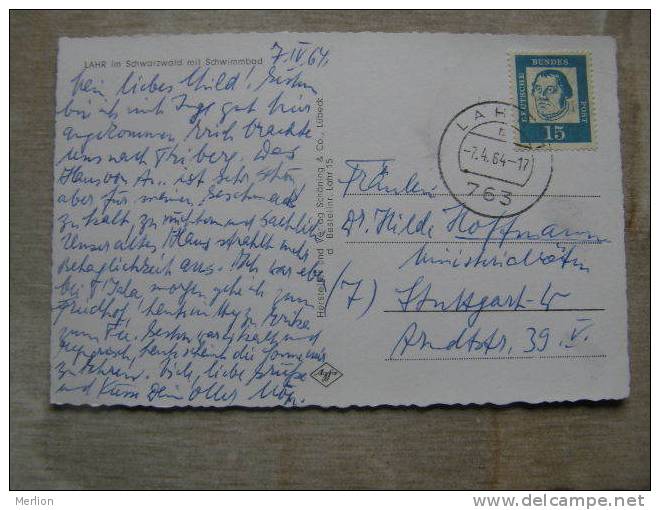 LAHR im Schwarzwald mit Schwimmbad
7.IV.64.
Mein liebes Kind! Gestern
bin ich mit Inge gut hier
angekommen, Erich brachte
uns nach Triberg. Das
Haus von An.. ist sehr schön
aber für meinen Geschmack
zu kalt zu nüchtern und sachlich
Unser altes Haus strahlt mehr
Behaglichkeit aus. Ich war eben
bei morgen gehe ich zum
Friedhof, heute
zum Tee. Gestern war es kalt und
regnerisch, heute scheint die Sonne
Dich, liebe grüße
und küsse Dein
Herstellung und Verlag Schöning & Co., Lübeck
d Bestellnr. Lahr 15
Agfa
DEUTSCHE BUNDES POST
15
LAHR
-7.4.64-17
763
Fräulein
Dr. Hilde Hoffmann
Ministerialrätin
(7) Stuttgart-W
Arndtstr. 39 V.
Merlion
www.delcampe.net